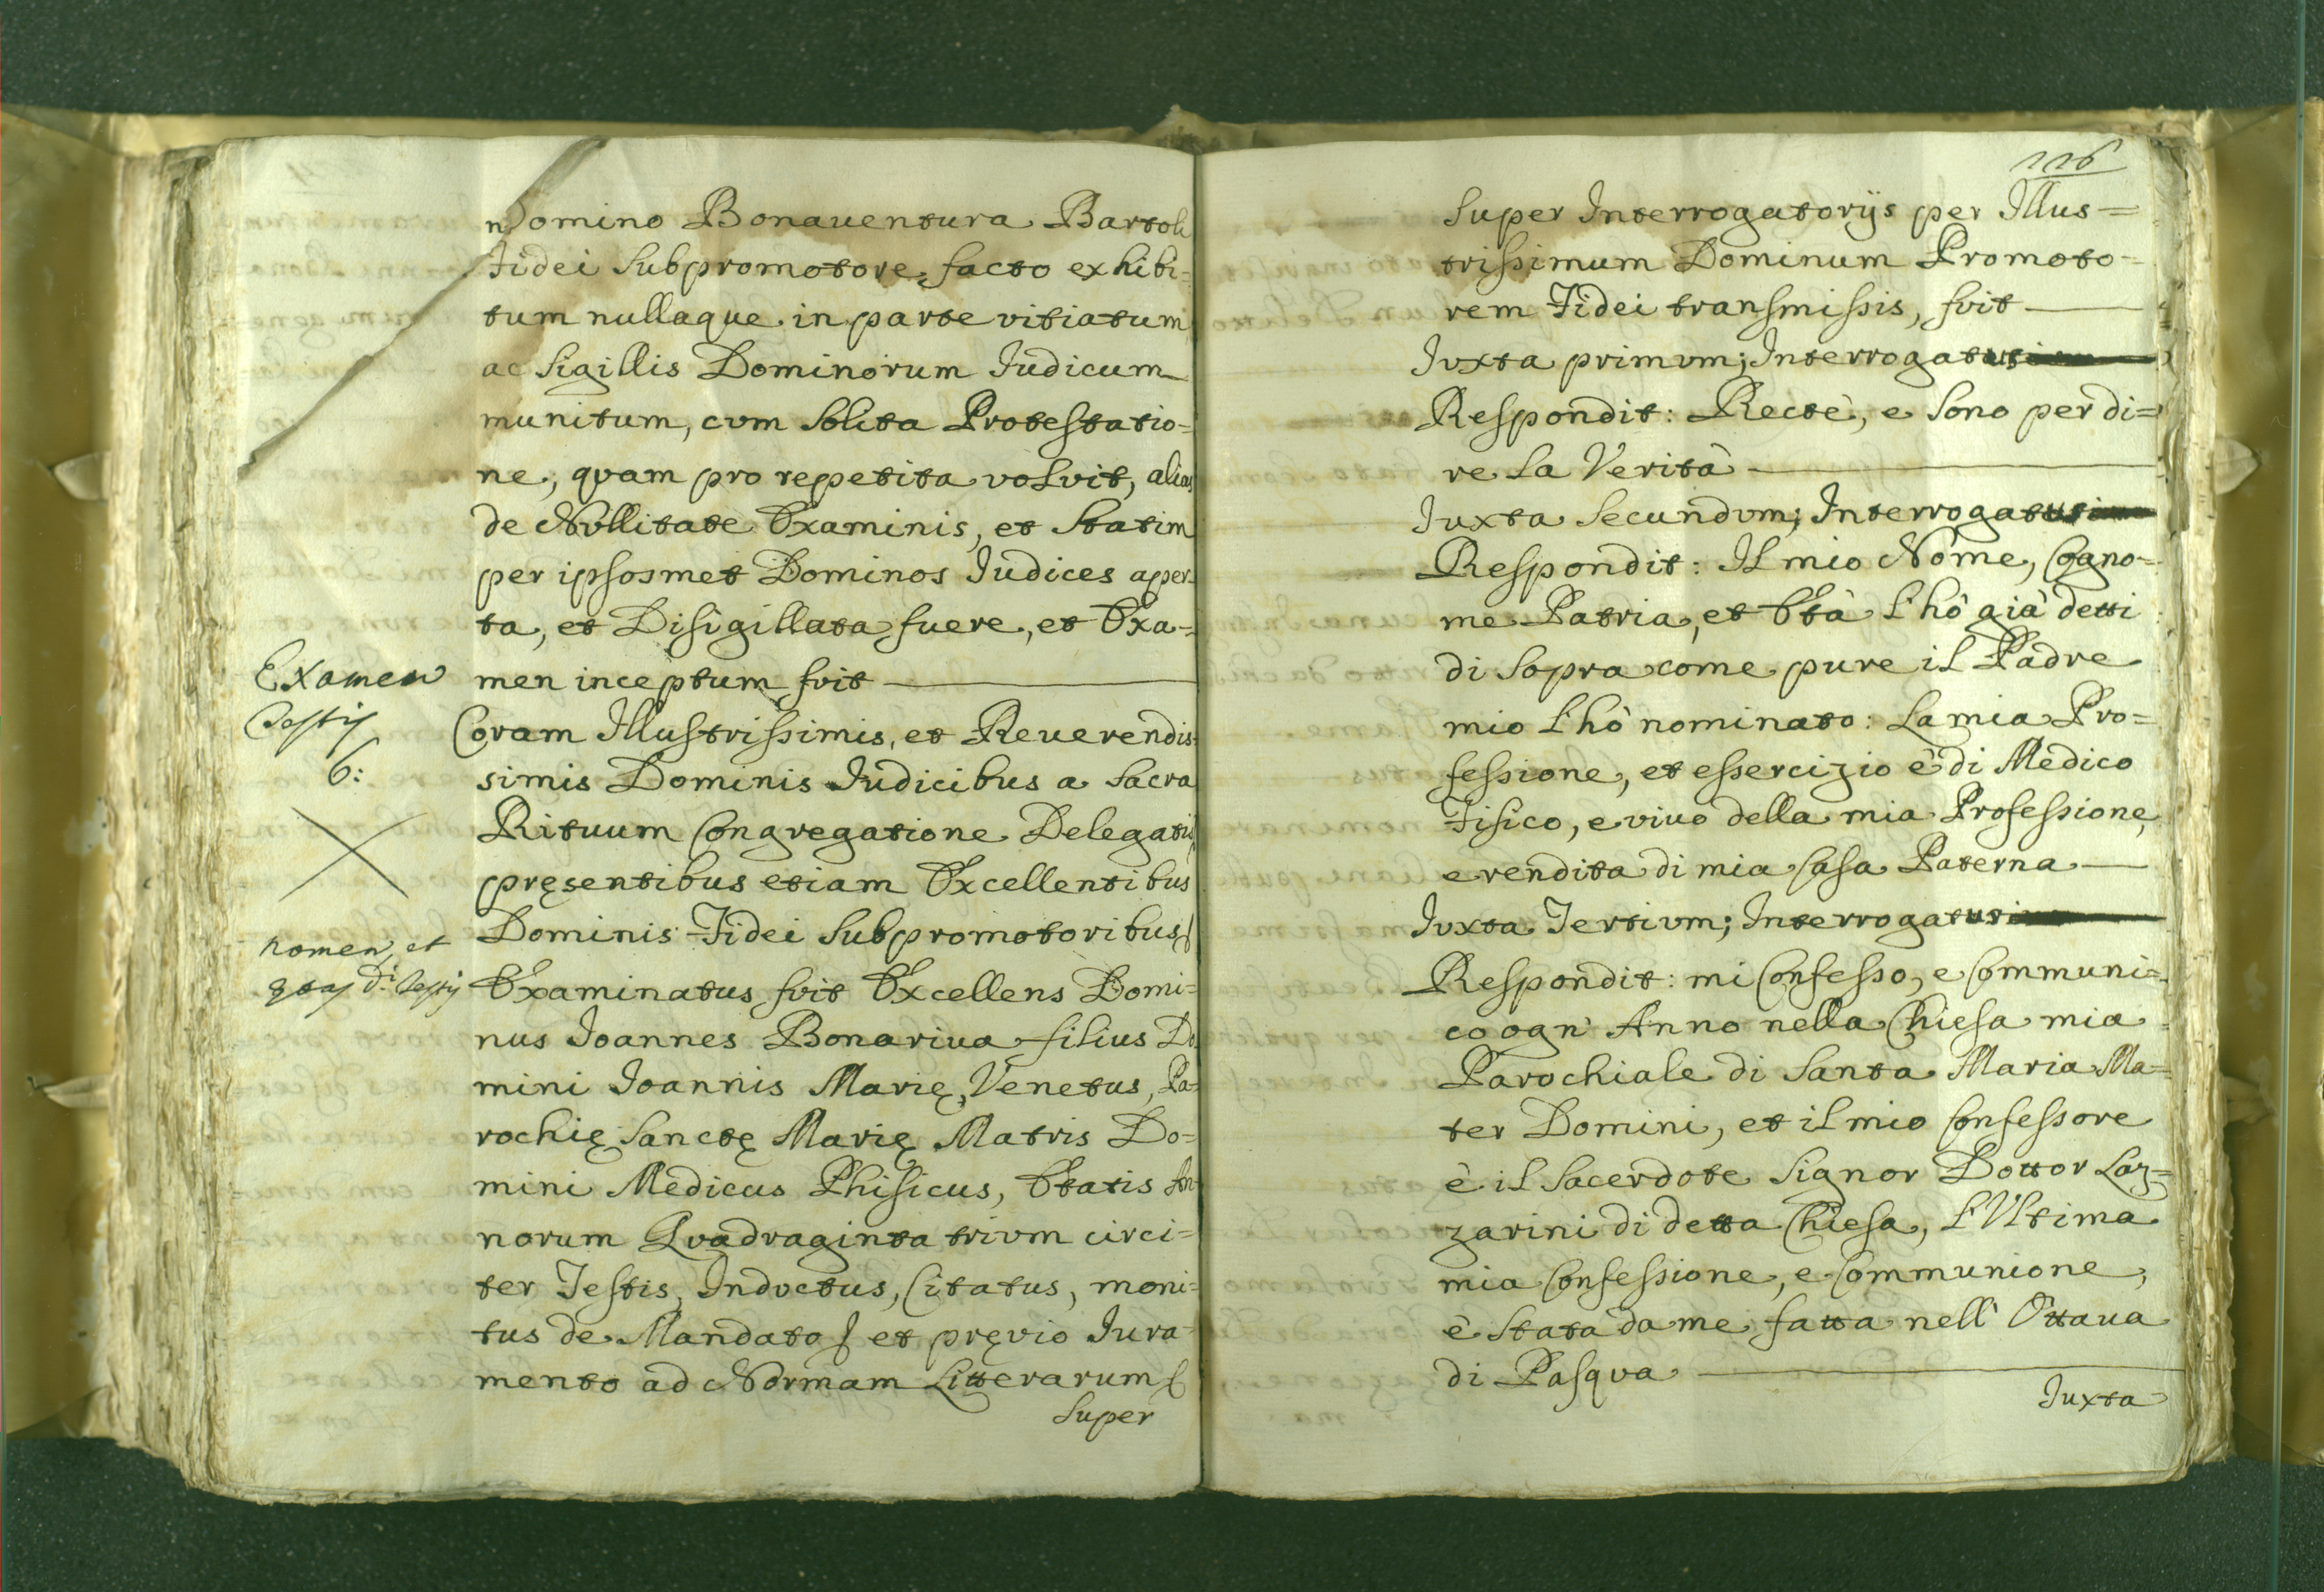 Domino Bonauentura Bartoli
Fidei Subpromotore, facto exhibi=
tum nullaque in parte vitiatum
ac Sigillis Dominorum Iudicum
munitum, cvm Solita Protestatio=
ne, qvam pro repetita volvit, alias
de Nvllitate Examinis, et Statim
per ipsosmet Dominos Iudices aper=
ta, et Disigillata fuere, et Exa=
men inceptum fvit
Examen
Testis
6:
Coram Illustrissimis, et Reuerendis=
simis Dominis Iudicibus a Sacra
Rituum Congregatione Delegatis,
pręsentibus etiam Excellentibus
Dominis Fidei Subpromotoribus
nomen, et
ętas d.i Testis
Examinatus fvit Excellens Domi=
nus Ioannes Bonariua filius Do
mini Ioannis Marię, Venetus, Pa=
rochię Sanctę Marię Matris Do=
mini Medicus Phisicus, Etatis An=
norum Qvadraginta trivm circi=
ter Testis, Indvctus, Citatus, moni=
tus de Mandato et pręvio Iura=
mento ad Normam Litterarum
Super
116
Super Interrogatorijs per Illus=
trissimum Dominum Promoto=
rem Fidei transmissis, fvit
Ivxta primvm; Interrogatus
Respondit: Rectè, e Sono per di=
re la Verità
Iuxta Secundvm; Interrogatus
Respondit: Il mio Nome, Cogno=
me Patria, et Età l'hò già detti
di Sopra come pure il Padre
mio l'hò nominato: La mia Pro=
fessione, et essercizio è di Medico
Fisico, e viuo della mia Professione,
e rendita di mia Casa Paterna
Ivxta Tertivm; Interrogatus
Respondit: mi Confesso, e Communi=
co ogn' Anno nella Chiesa mia
Parochiale di Santa Maria Ma=
ter Domini, et il mio Confessore
è il Sacerdote Signor Dottor Laz=
zarini di detta Chiesa, l'Vltima
mia Confessione, e Communione,
è Stata da me fatta nell' Ottaua
di Pasqva
Iuxta